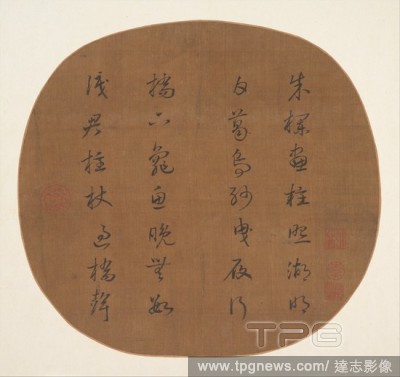 朱欄畫柱照湖明
白葛烏紗曳履行
橋下龜魚晚無數
識君拄杖過橋聲
TPG
www.tpgnews.com / 達志影像